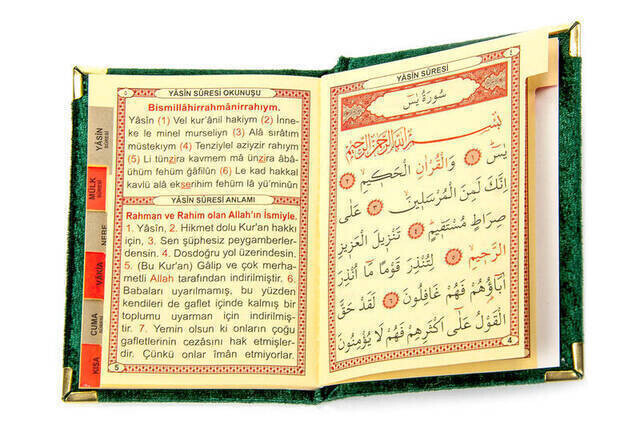 YÂSİN SÛRESİ OKUNUŞU
5
Bismillâhirrahmânirrahıym.
Yâsîn (1) Vel kur'ânil hakiym (2) İnne-
ke le minel murseliyn (3) Alâ sırâtim
müstekıym (4) Tenziylel aziyzir rahıym
(5) Li tünzira kavmem mâ ünzira âbâ-
ühüm fehüm ğâfilûn (6) Le kad hakkal
kavlü alâ ekserihim fehüm lâ yü'minûn
YÂSİN SÛRESİ ANLAMI
Rahman ve Rahim olan Allah'ın İsmiyle.
1. Yâsîn, 2. Hikmet dolu Kur'an hakkı
için, 3. Sen şüphesiz peygamberler-
densin. 4. Dosdoğru yol üzerindesin.
5. (Bu Kur'an) Gâlip ve çok merha-
metli Allah tarafından indirilmiştir. 6.
Babaları uyarılmamış, bu yüzden
kendileri de gaflet içinde kalmış bir
toplumu uyarman için indirilmiş-
tir. 7. Yemin olsun ki onların çoğu
gafletlerinin cezasını hak etmişler-
dir. Çünkü onlar îmân etmiyorlar.
5
YÂSİN
SÛRESİ
MÜLK
SÛRESİ
NEBE
VAKIA
CUMA
KISA
YÂSİN SÛRESİ
٤
سُورَةُ يٰسٓ
بِسْمِ اللّٰهِ الرَّحْمٰنِ الرَّحِيمِ
يٰسٓ ﴿١﴾ وَالْقُرْاٰنِ الْحَكِيمِ ﴿٢﴾
اِنَّكَ لَمِنَ الْمُرْسَلِينَ ﴿٣﴾ عَلٰى
صِرَاطٍ مُسْتَقِيمٍ ﴿٤﴾ تَنْزِيلَ الْعَزِيزِ
الرَّحِيمِ ﴿٥﴾ لِتُنْذِرَ قَوْمًا مَٓا اُنْذِرَ
اٰبَٓاؤُ۬هُمْ فَهُمْ غَافِلُونَ ﴿٦﴾ لَقَدْ حَقَّ
الْقَوْلُ عَلٰٓى اَكْثَرِهِمْ فَهُمْ لَا يُؤْمِنُونَ
4